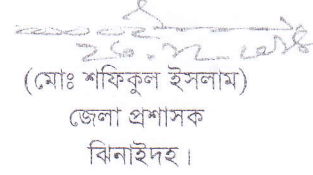 (মোঃ শফিকুল ইসলাম)
জেলা প্রশাসক
ঝিনাইদহ।